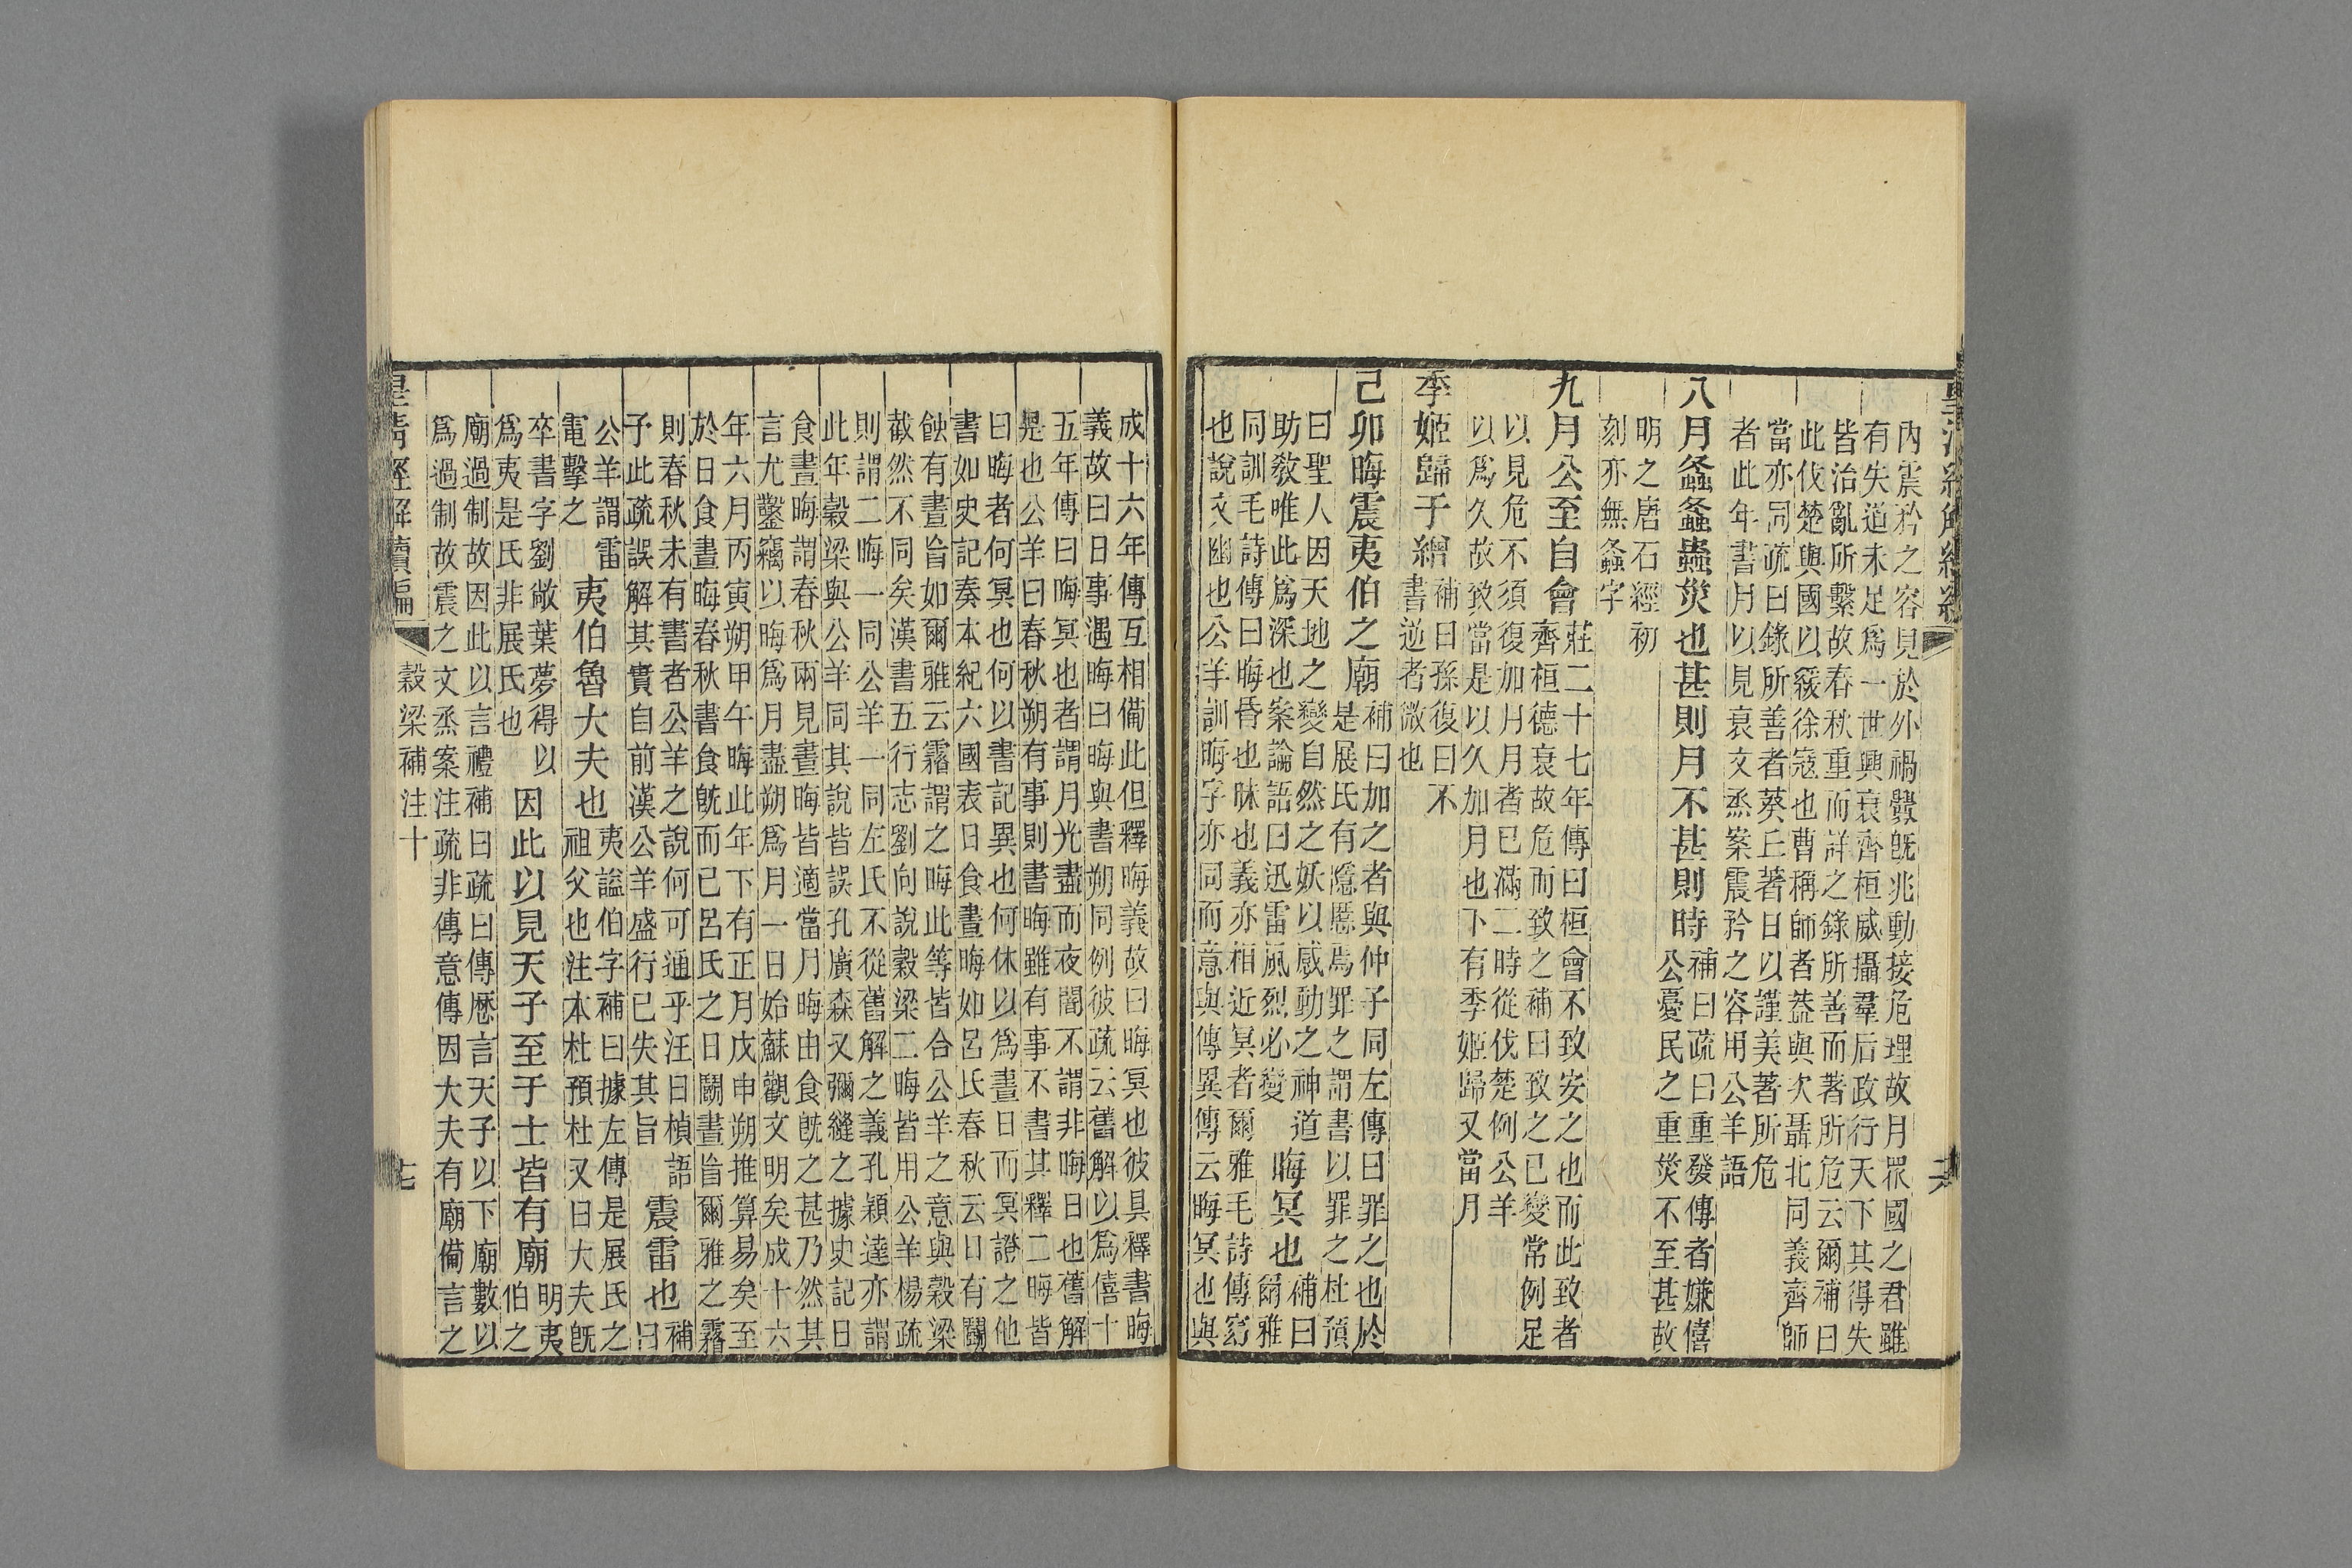 內震矜之容見於外禍釁旣兆動接危理故月眾國之君雖
有失道未足爲一世興衰齊桓威攝羣后政行天下其得失
皆治亂所繫故春秋重而詳之錄所善而著所危云爾補曰
此伐楚與國以緩徐寇也曹稱師者葢與次聶北同義齊師
當亦同疏曰錄所善者葵丘著日以謹美著所危
者此年書月以見衰文烝案震矜之容用公羊語
八月螽螽蟲災也甚則月不甚則時
補曰疏曰重發傳者嫌僖
公憂民之重災不至甚故
明之唐石經初
刻亦無螽字
九月公至自會
莊二十七年傳曰桓會不致安之也而此致者
齊桓德衰故危而致之補曰致之已變常例足
以見危不須復加月月者已滿二時從伐楚例公羊
以爲久故致當是以久加月也下有季姬歸又當月
季姬歸于繒
補曰孫復曰不
書逆者微也
己卯晦震夷伯之廟
補曰加之者與仲子同左傳曰罪之也於
是展氏有隱慝焉罪之謂書以罪之杜預
曰聖人因天地之變自然之妖以感動之神道
助敎唯此爲深也案論語曰迅雷風烈必變
晦冥也
補曰
爾雅
同訓毛詩傳曰晦昏也昧也義亦相近冥者爾雅毛詩傳窈
也說文幽也公羊訓晦字亦同而意與傳異傳云晦冥也與
成十六年傳互相備此但釋晦義故曰晦冥也彼具釋書晦
義故曰日事遇晦曰晦與書朔同例彼疏云舊解以爲僖十
五年傳曰晦冥也者謂月光盡而夜闇不謂非晦日也舊解
是也公羊曰春秋朔有事則書晦雖有事不書其釋二晦皆
曰晦者何冥也何以書記異也何休以爲晝日而冥證之他
書如史記奏本紀六國表日食晝晦如呂氏春秋云日有鬭
蝕有晝旨如爾雅云霿謂之晦此等皆合公羊之意與穀梁
截然不同矣漢書五行志劉向說穀梁二晦皆用公羊楊疏
則謂二晦一同公羊一同左氏不從舊解之義孔穎達亦謂
此年穀梁與公羊同其說皆誤孔廣森又彌縫之據史記日
食晝晦謂春秋兩見晝晦皆適當月晦由食旣之甚乃然其
言尤鑿竊以晦爲月盡朔爲月一日始蘇觀文明矣成十六
年六月丙寅朔甲午晦此年下有正月戊申朔推算易矣至
於日食晝晦春秋書食旣而已呂氏之日鬭晝旨爾雅之霿
則春秋未有書者公羊之說何可通乎汪日楨語
予此疏誤解其實自前漢公羊盛行已失其旨
震雷也
補
曰
公羊謂雷
電擊之
夷伯魯大夫也
夷謚伯字補曰據左傳是展氏之
祖父也注本杜預杜又曰大夫旣
卒書字劉敞葉夢得以
爲夷是氏非展氏也
因此以見天子至于士皆有廟
明夷
伯之
廟過制故因此以言禮補曰疏曰傳歷言天子以下廟數以
爲過制故震之文烝案注疏非傳意傳因大夫有廟備言之
皇淸經解續編
穀梁補注十
七